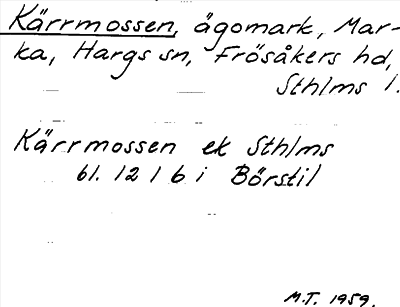 Kärrmossen, ägomark, Mar-
ka, Hargs sn, Frösåkers hd,
Sthlms l.
Kärrmossen ek Sthlms
bl. 12 1 6 i Börstil
M.T. 1959.